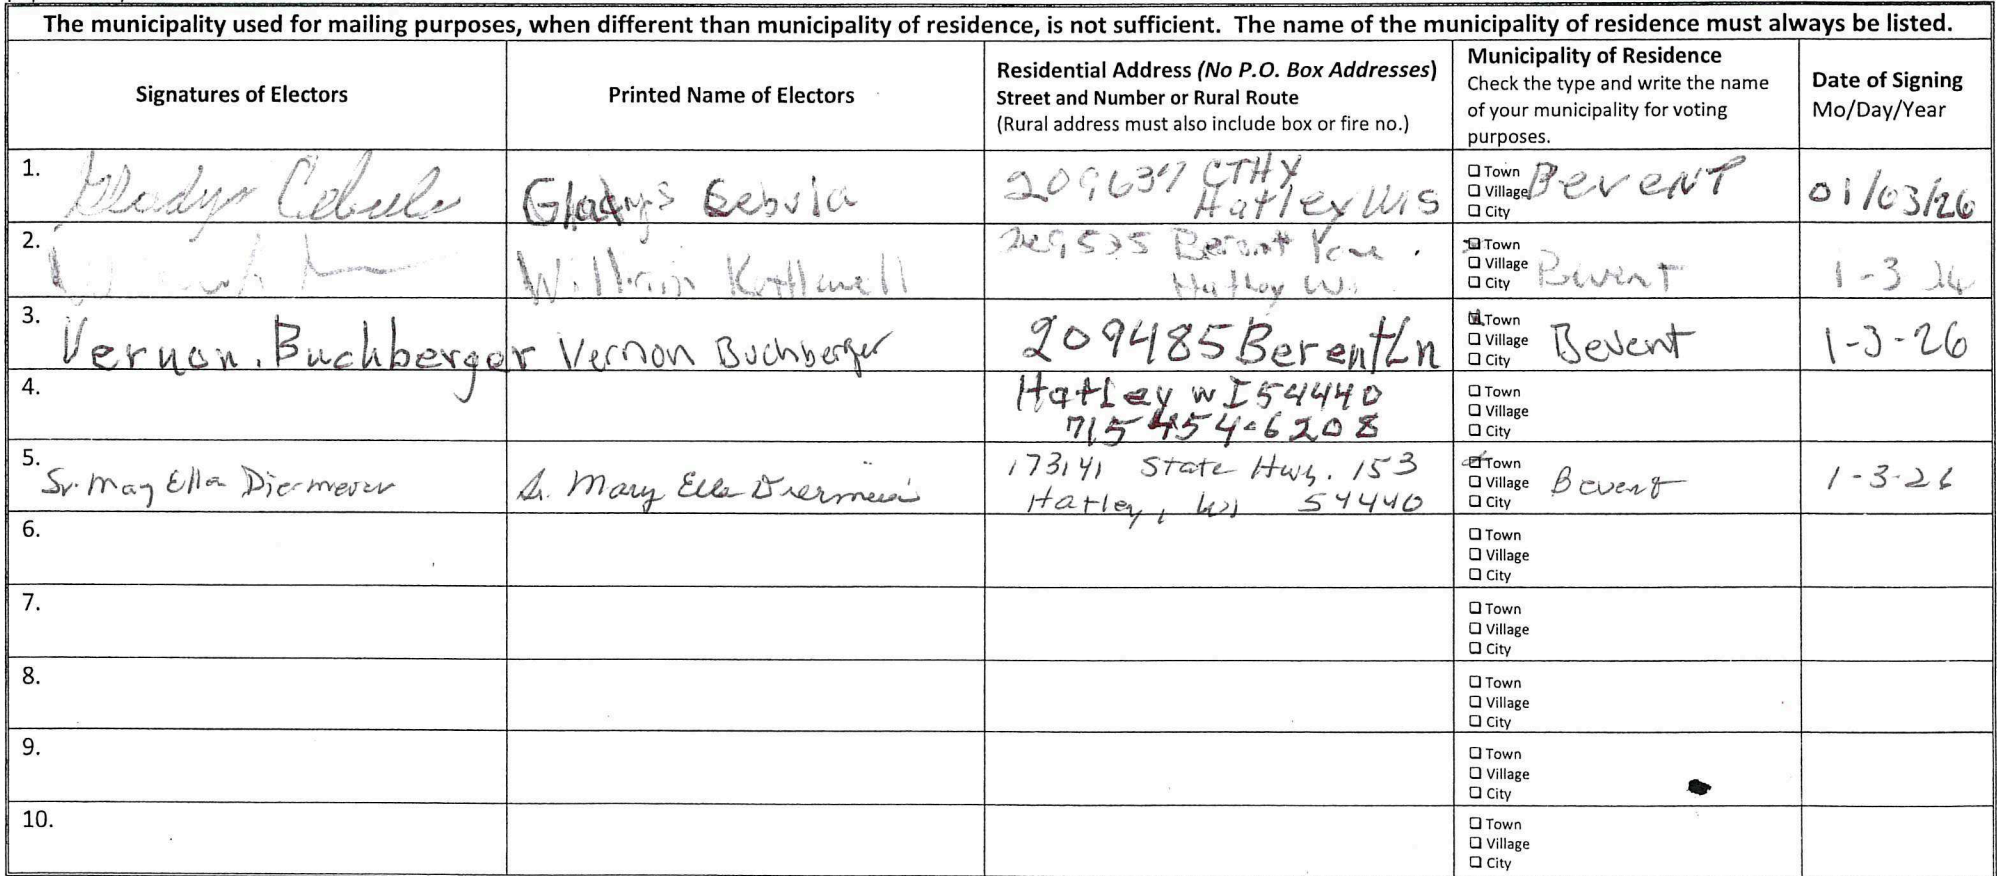 The municipality used for mailing purposes, when different than municipality of residence, is not sufficient. The name of the municipality of residence must always be listed.
Signatures of Electors
Printed Name of Electors
Residential Address (No P.O. Box Addresses)
Street and Number or Rural Route
(Rural address must also include box or fire no.)
Municipality of Residence
Check the type and write the name
of your municipality for voting
purposes.
Date of Signing
Mo/Day/Year
1.
Gladys Cebula
Gladys Cebula
209637 CTHY
Hatley Wis
Town
Village
City
Bevent
01/03/26
2.
William
Bevent
Hatley Wi.
Town
Village
City
Bevent
1-3 26
3.
Vernon. Buchberger
Vernon Buchberger
209485 Bevent Ln
Town
Village
City
Bevent
1-3-26
4.
Hatley WI 54440
715 454-6208
Town
Village
City
5.
Sr. Mary Ella Diermeier
Sr. Mary Ella Diermeier
173141 State Hwy. 153
Hatley, WI 54440
Town
Village
City
Bevent
1-3-26
6.
Town
Village
City
7.
Town
Village
City
8.
Town
Village
City
9.
Town
Village
City
10.
Town
Village
City